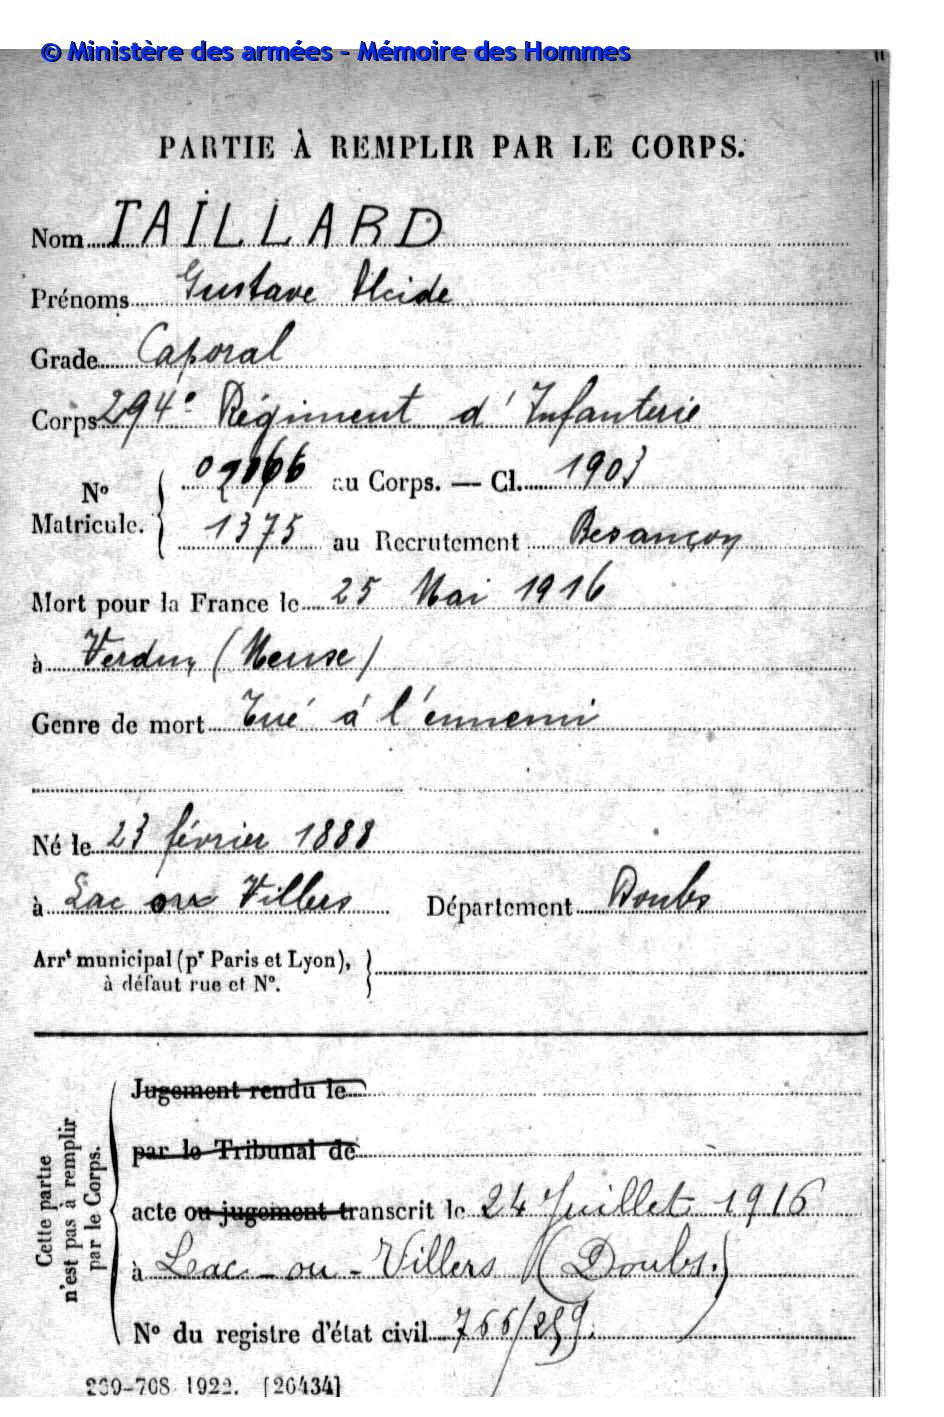 © Ministère des armées - Mémoire des Hommes
PARTIE À REMPLIR PAR LE CORPS.
Nom TAILLARD
Prénoms Gustave Alcide
Grade Caporal
Corps 294e Régiment d'Infanterie
No Matricule. { au Corps. — Cl. 1903
1375 au Recrutement Besançon
Mort pour la France le 25 Mai 1916
à Verdun (Meuse)
Genre de mort Tué à l'ennemi
Né le 23 février 1888
à Lac ou Villers Département Doubs
Arrt municipal (pr Paris et Lyon), }
à défaut rue et No.
Cette partie n'est pas à remplir par le Corps.
Jugement rendu le
par le Tribunal de
acte ou jugement transcrit le 24 Juillet 1916
à Lac-ou-Villers (Doubs.)
No du registre d'état civil 766/259.
1922. [26434]